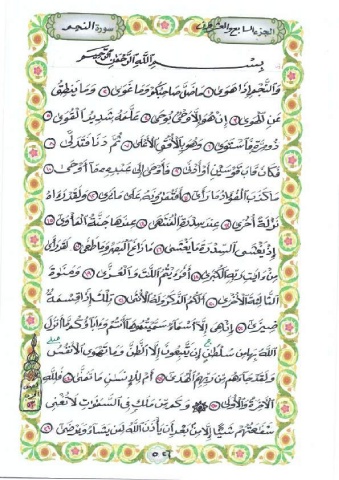 الجزء السابع والعشرون
سورة النجم
بسم الله الرحمن الرحيم
والنجم إذا هوى ۝ ما ضل صاحبكم وما غوى ۝ وما ينطق
عن الهوى ۝ إن هو إلا وحي يوحى ۝ علمه شديد القوى ۝
ذو مرة فاستوى ۝ وهو بالأفق الأعلى ۝ ثم دنا فتدلى ۝
فكان قاب قوسين أو أدنى ۝ فأوحى إلى عبده ما أوحى ۝
ما كذب الفؤاد ما رأى ۝ أفتمرونه على ما يرى ۝ ولقد رءاه
نزلة أخرى ۝ عند سدرة المنتهى ۝ عندها جنة المأوى ۝
إذ يغشى السدرة ما يغشى ۝ ما زاغ البصر وما طغى ۝ لقد رأى
من ءايت ربه الكبرى ۝ أفرءيتم اللت والعزى ۝ ومنوة
الثالثة الأخرى ۝ ألكم الذكر وله الأنثى ۝ تلك إذا قسمة
ضيزى ۝ إن هي إلا أسماء سميتموها أنتم وءاباؤكم ما أنزل
الله بها من سلطن إن يتبعون إلا الظن وما تهوى الأنفس
ولقد جاءهم من ربهم الهدى ۝ أم للإنسن ما تمنى ۝ فلله
الآخرة والأولى ۝ وكم من ملك في السموت لا تغني
شفعتهم شيئا إلا من بعد أن يأذن الله لمن يشاء ويرضى ۝